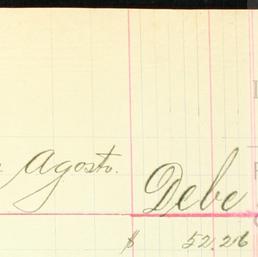 Agosto. Debe
$ 52.26